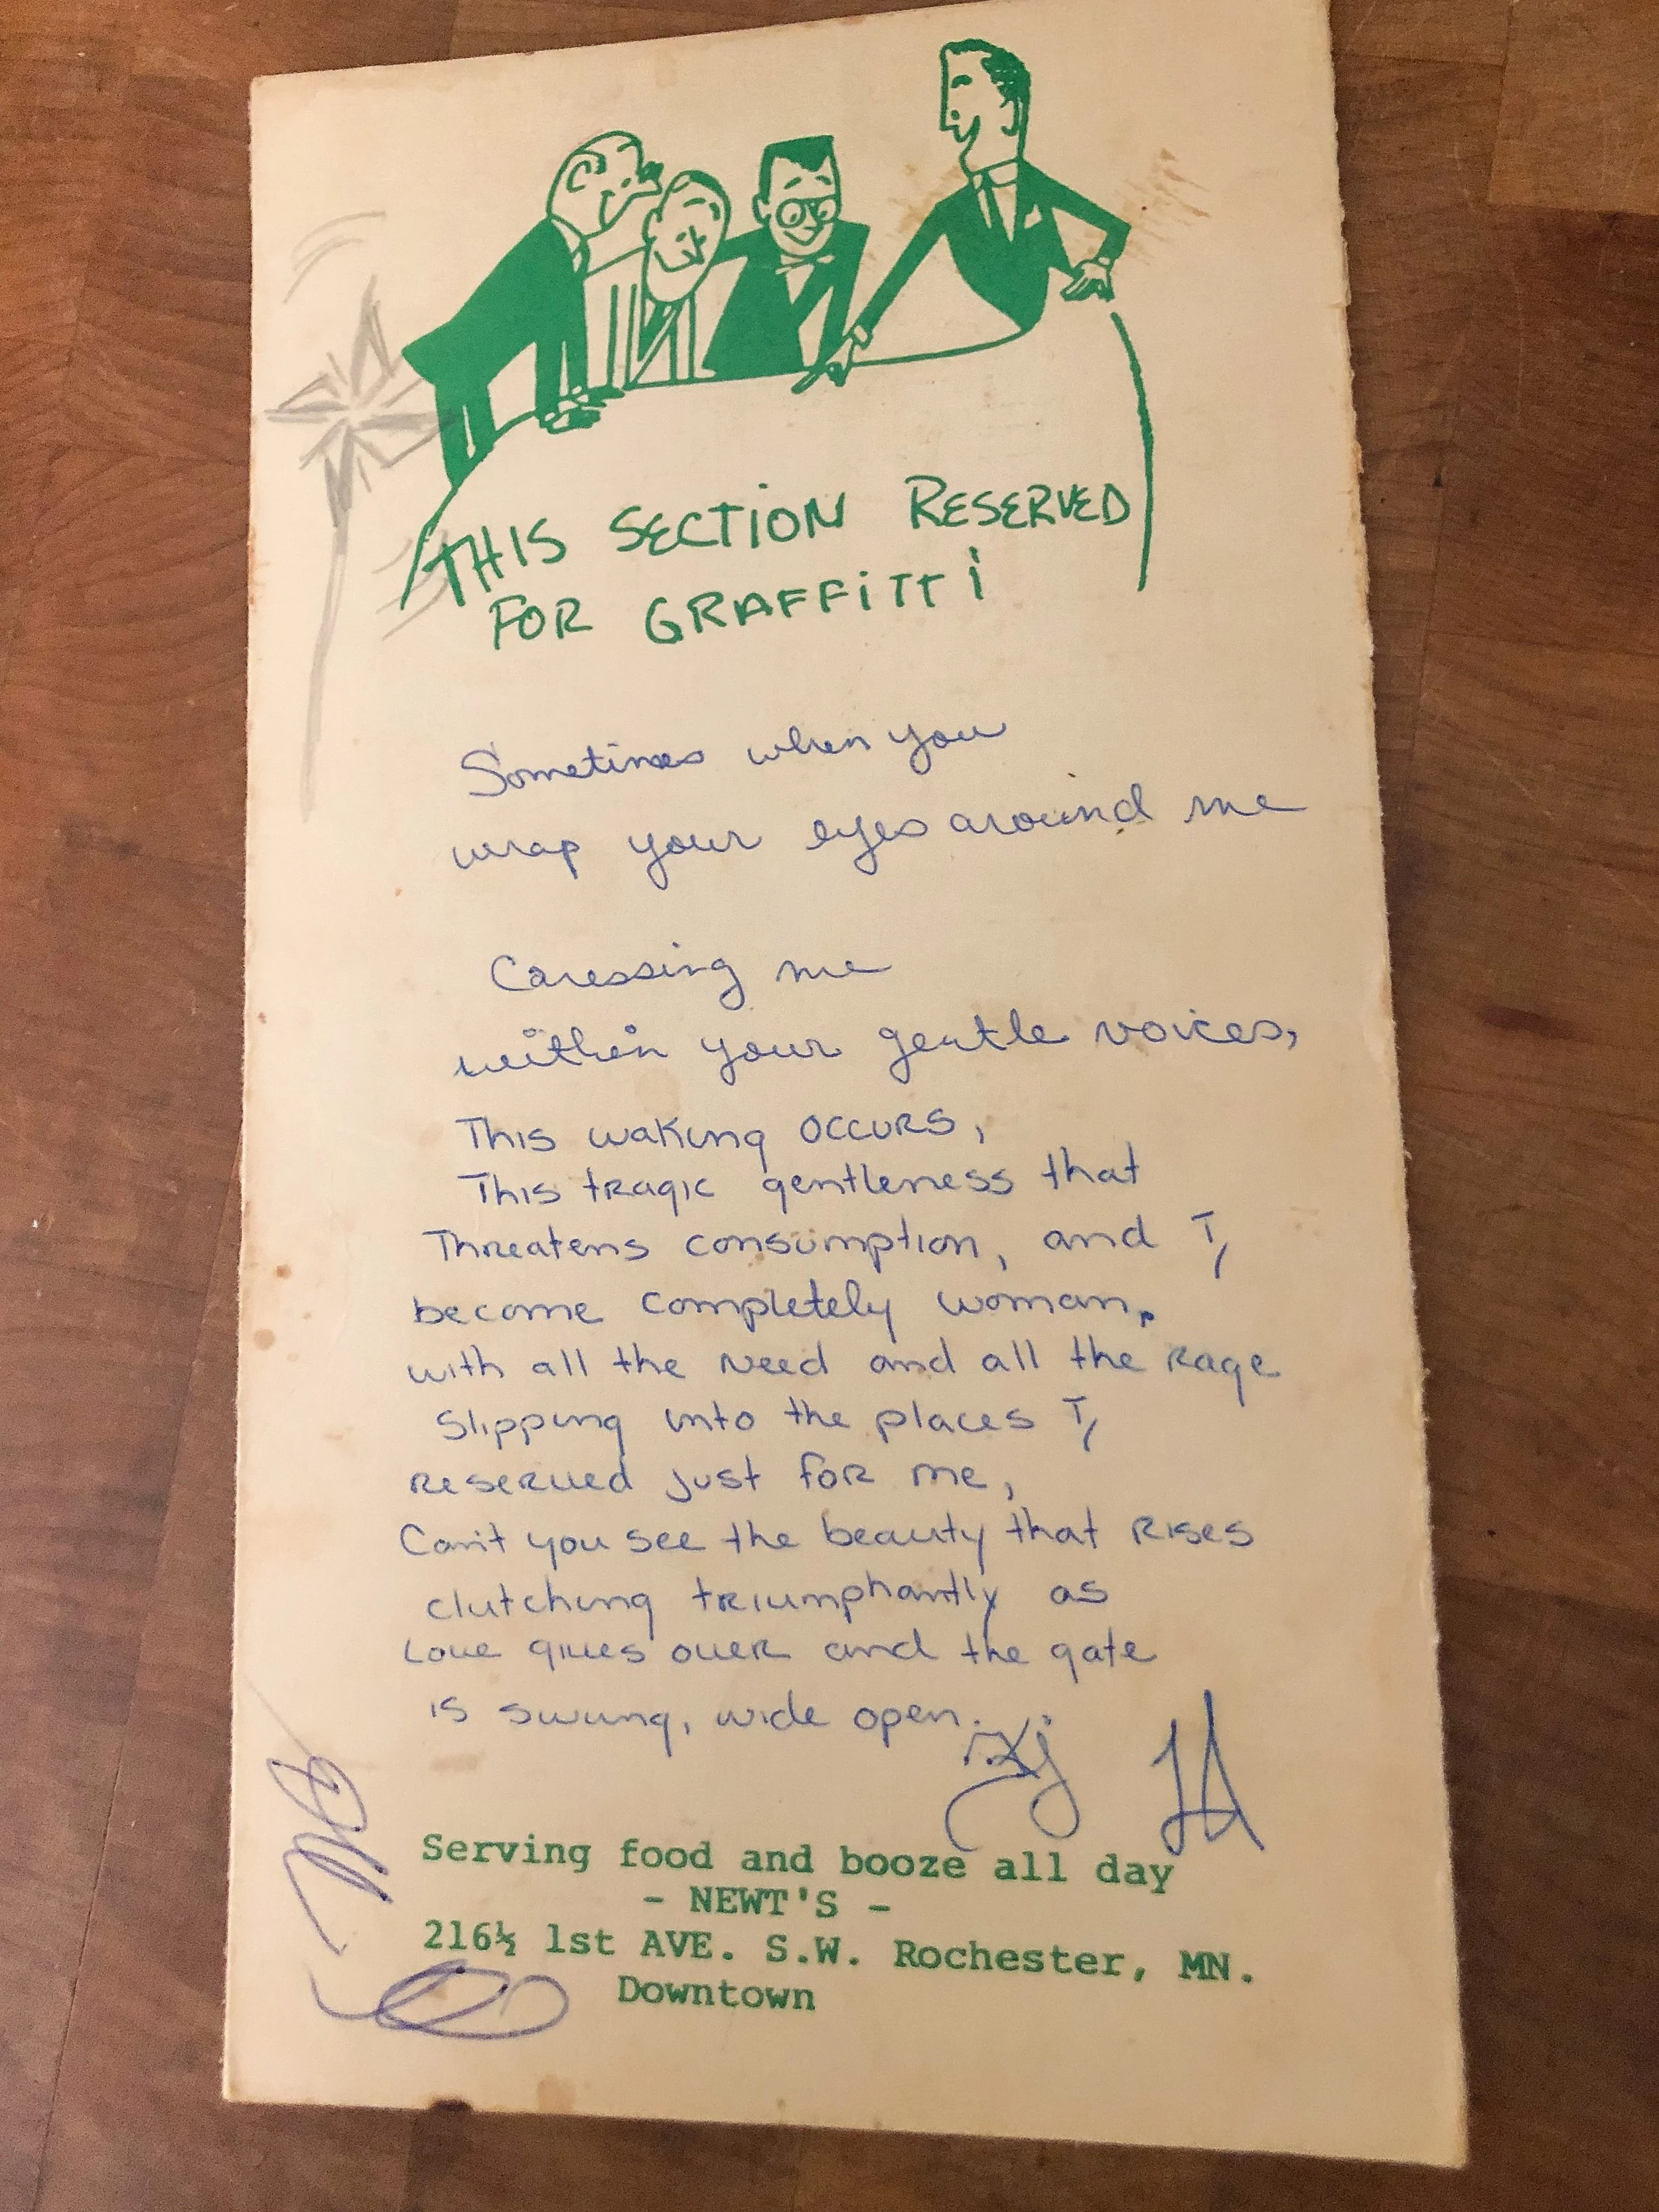 THIS SECTION RESERVED
FOR GRAFFITTI
Sometimes when you
wrap your eyes around me
Caressing me
within your gentle voices,
This waking occurs,
This tragic gentleness that
Threatens consumption, and I,
become completely woman,
with all the need and all the rage
Slipping into the places I,
reserved just for me,
Can't you see the beauty that rises
clutching triumphantly as
Love gives over and the gate
is swung, wide open.
Serving food and booze all day
- NEWT'S -
216½ 1st AVE. S.W. Rochester, MN.
Downtown